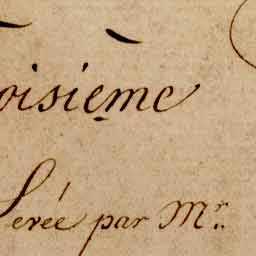 oisième
erée par Mr.